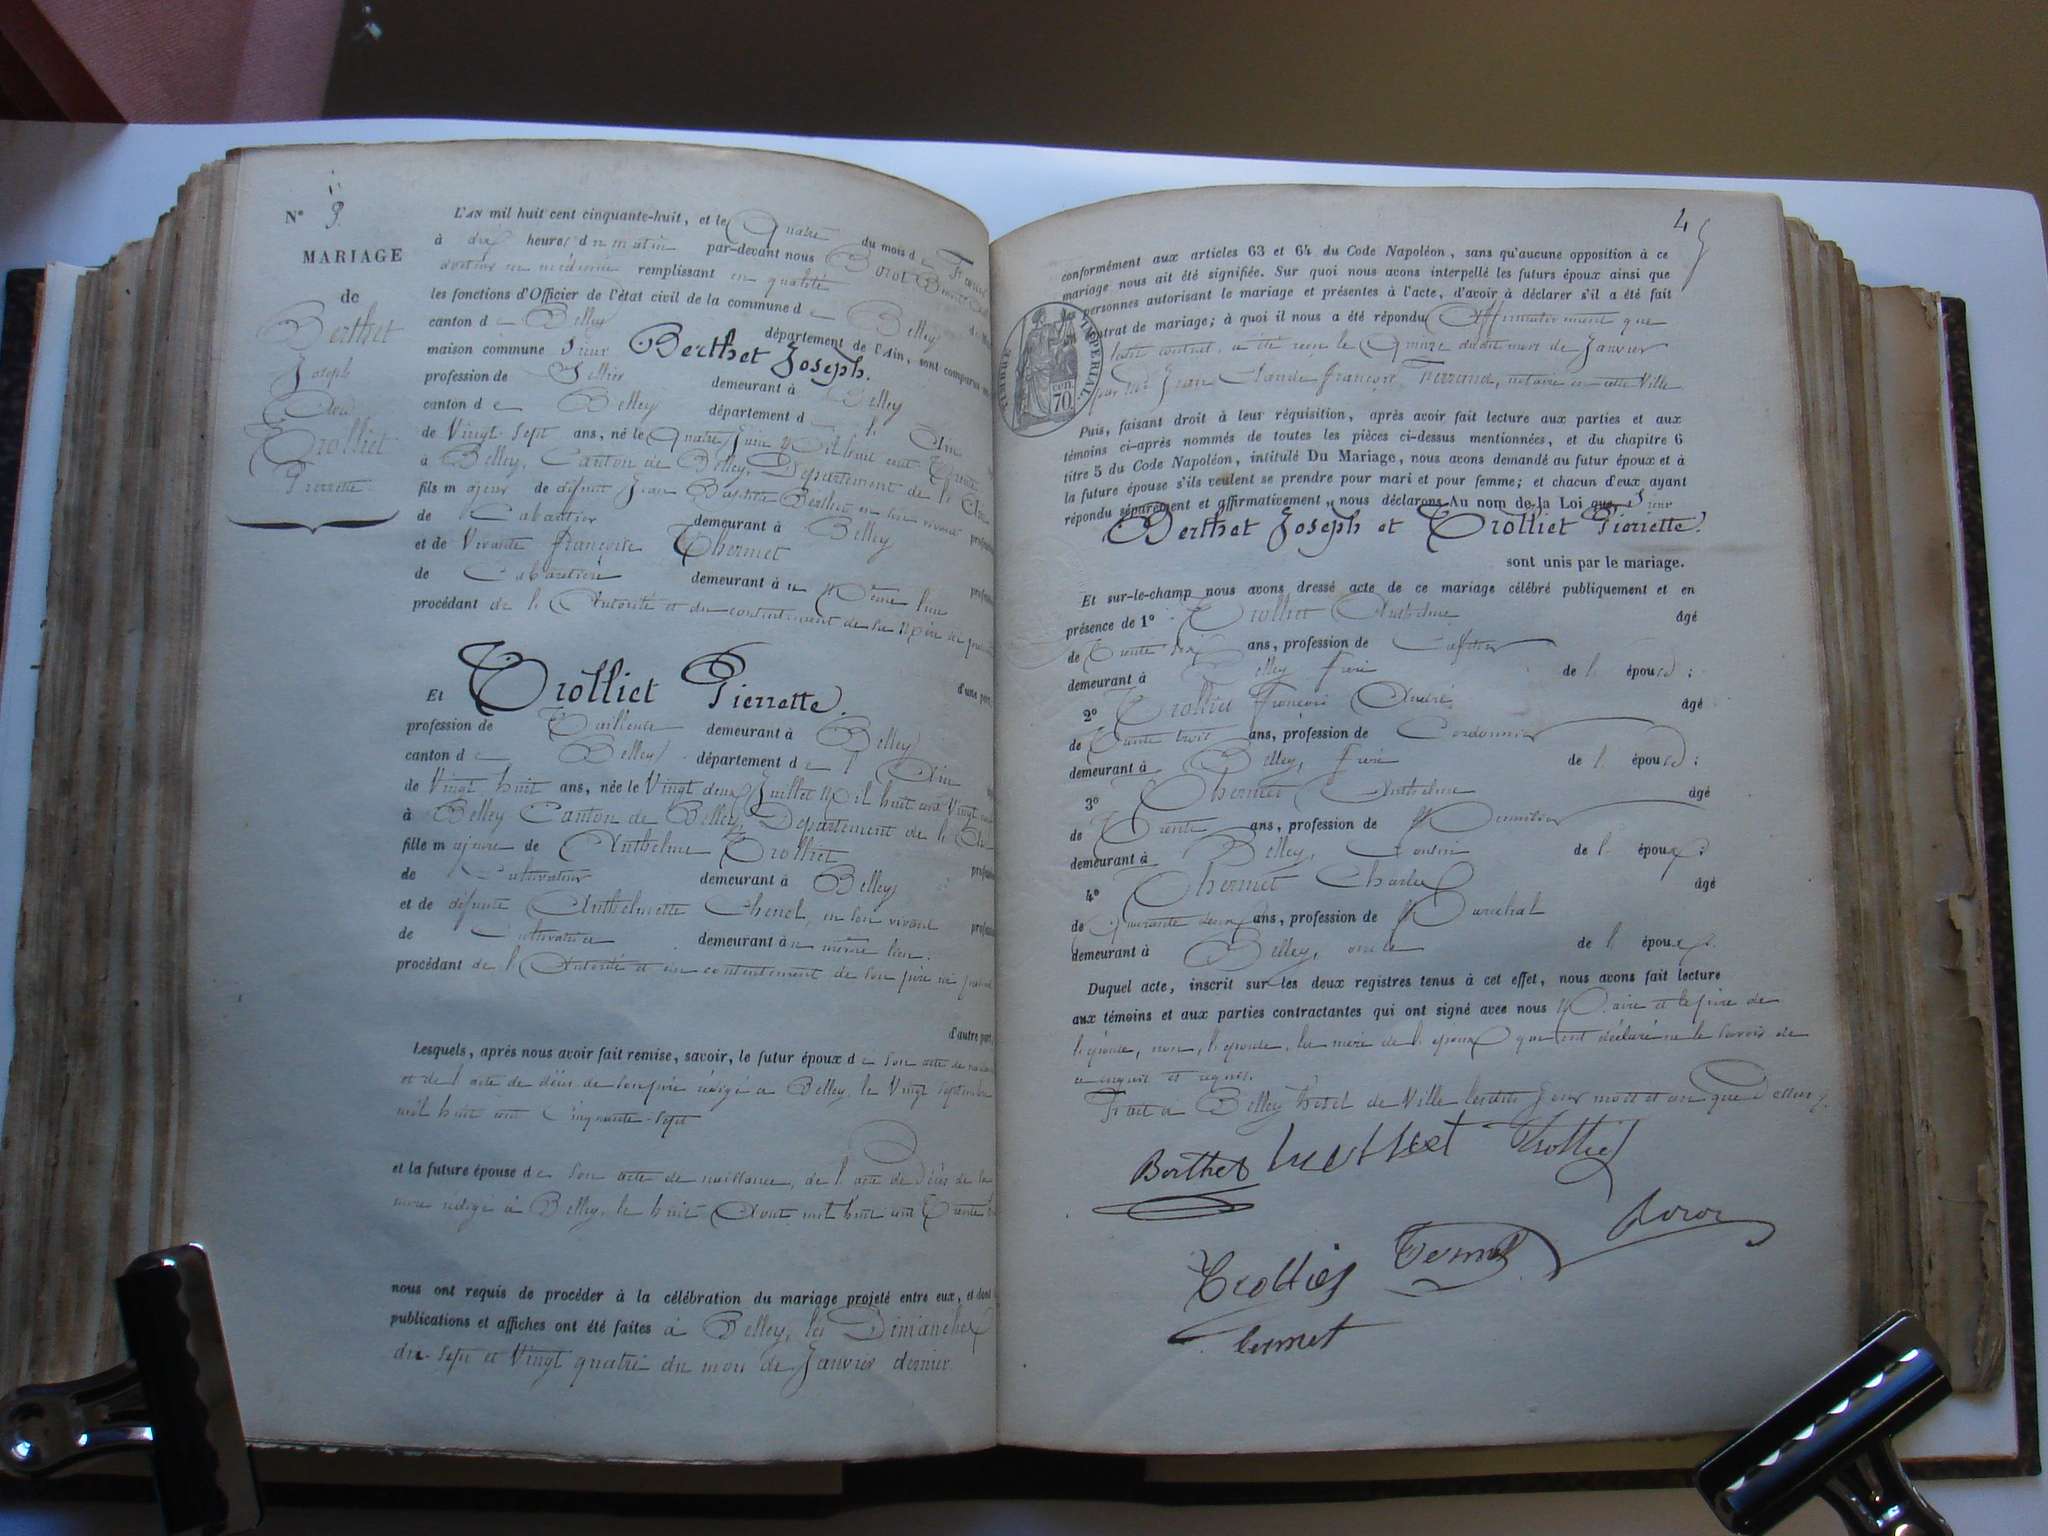 N° 9.
MARIAGE
de
Berthet
Joseph
Et
Trolliet
Pierrette
L'AN mil huit cent cinquante-huit, et le Quatre du mois de
à dix heures du matin par-devant nous Dorot
docteur en médecine remplissant en qualité
les fonctions d'Officier de l'état civil de la commune de Belley
canton de Belley département de l'Ain, sont comparus
maison commune Sieur Berthet Joseph.
profession de Sellier demeurant à Belley
canton de Belley département de l'Ain
de Vingt-sept ans, né le Quatre Juin Mil huit cent Trente
à Belley, Canton de Belley, Département de l'Ain
fils majeur de défunt Jean Baptiste Berthet en son vivant
de Cabaretier demeurant à Belley
et de Vivante Françoise Thermet
de Cabaretière demeurant à u même lieu
procédant de l'Autorité et du consentement de sa Mère ici
Et Trolliet Pierrette. d'une part,
profession de Tailleuse demeurant à Belley
canton de Belley département de l'Ain
de Vingt huit ans, née le Vingt deux Juillet Mil huit cent Vingt
à Belley Canton de Belley, Département de l'Ain
fille majeure de Anthelme Trolliet
de Cultivateur demeurant à Belley
et de défunte Anthelmette Chenel, en son vivant
de Cultivatrice demeurant à u même lieu.
procédant de l'Autorité et du consentement de son père ici
d'autre part,
Lesquels, après nous avoir fait remise, savoir, le futur époux de son acte de
et de l'acte de décès de son père rédigé à Belley, le Vingt septembre
mil huit cent Cinquante-sept
et la future épouse de son acte de naissance, de l'acte de Décès de sa
mère rédigé à Belley, le huit Août mil huit cent Trente
nous ont requis de procéder à la célébration du mariage projeté entre eux, et dont
publications et affiches ont été faites à Belley, les Dimanches
dix-sept et Vingt quatre du mois de Janvier dernier
45
conformément aux articles 63 et 64 du Code Napoléon, sans qu'aucune opposition à ce
mariage nous ait été signifiée. Sur quoi nous avons interpellé les futurs époux ainsi que
personnes autorisant le mariage et présentes à l'acte, d'avoir à déclarer s'il a été fait
contrat de mariage; à quoi il nous a été répondu Affirmativement que
ledit contrat, a été reçu le Onze dudit mois de Janvier
par Me Jean Claude François Ferrand, notaire en cette Ville
TIMBRE IMPERIAL
CEN.
70
Puis, faisant droit à leur réquisition, après avoir fait lecture aux parties et aux
témoins ci-après nommés de toutes les pièces ci-dessus mentionnées, et du chapitre 6
titre 5 du Code Napoléon, intitulé Du Mariage, nous avons demandé au futur époux et à
la future épouse s'ils veulent se prendre pour mari et pour femme; et chacun d'eux ayant
répondu séparément et affirmativement, nous déclarons Au nom de la Loi que Sieur
Berthet Joseph et Trolliet Pierrette.
sont unis par le mariage.
Et sur-le-champ nous avons dressé acte de ce mariage célébré publiquement et en
présence de 1° Trolliet Anthelme âgé
de Trente six ans, profession de
demeurant à Belley frère de l'épouse;
2° Trolliet François André, âgé
de Trente trois ans, profession de Cordonnier
demeurant à Belley, frère de l'épouse;
3° Thermet Anthelme âgé
de Trente ans, profession de Menuisier
demeurant à Belley, cousin de l'époux;
4° Thermet Charles âgé
de Quarante deux ans, profession de Maréchal
demeurant à Belley, oncle de l'époux.
Duquel acte, inscrit sur les deux registres tenus à cet effet, nous avons fait lecture
aux témoins et aux parties contractantes qui ont signé avec nous Maire et le père de
l'épouse, non, l'épouse, la mère de l'époux qui ont déclaré ne le savoir de
ce enquis et requis.
Fait à Belley hôtel de Ville lesdits Jour mois et an que Dessus.
Berthet Trolliet
Trolliet Dorot